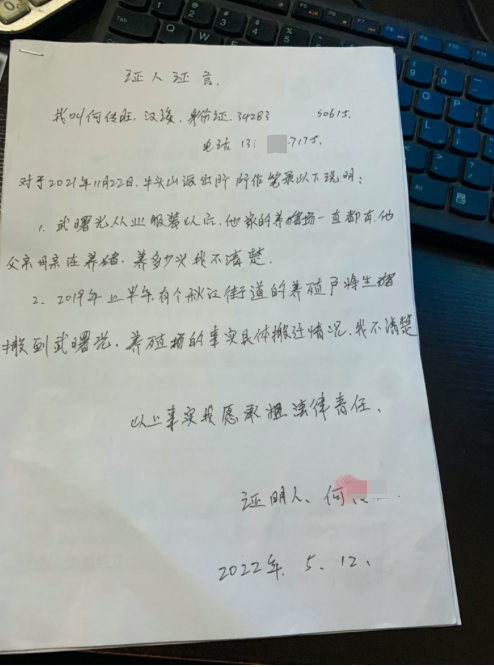 证人证言.
我叫何传旺.汉族.身份证.34283 50615.
电话 131 7175.
对于2021年11月22日.牛头山派出所所作笔录以下说明:
1. 武曙光从业服装以后,他家的养猪场一直都有.他
父亲母亲在养猪.养多少头我不清楚.
2. 2019年上半年.有个秋江街道的养殖户将生猪
搬到武曙光.养殖场的事实具体搬迁情况.我不清楚
以上事实我愿承担法律责任.
证明人、何
2022年.5.12.